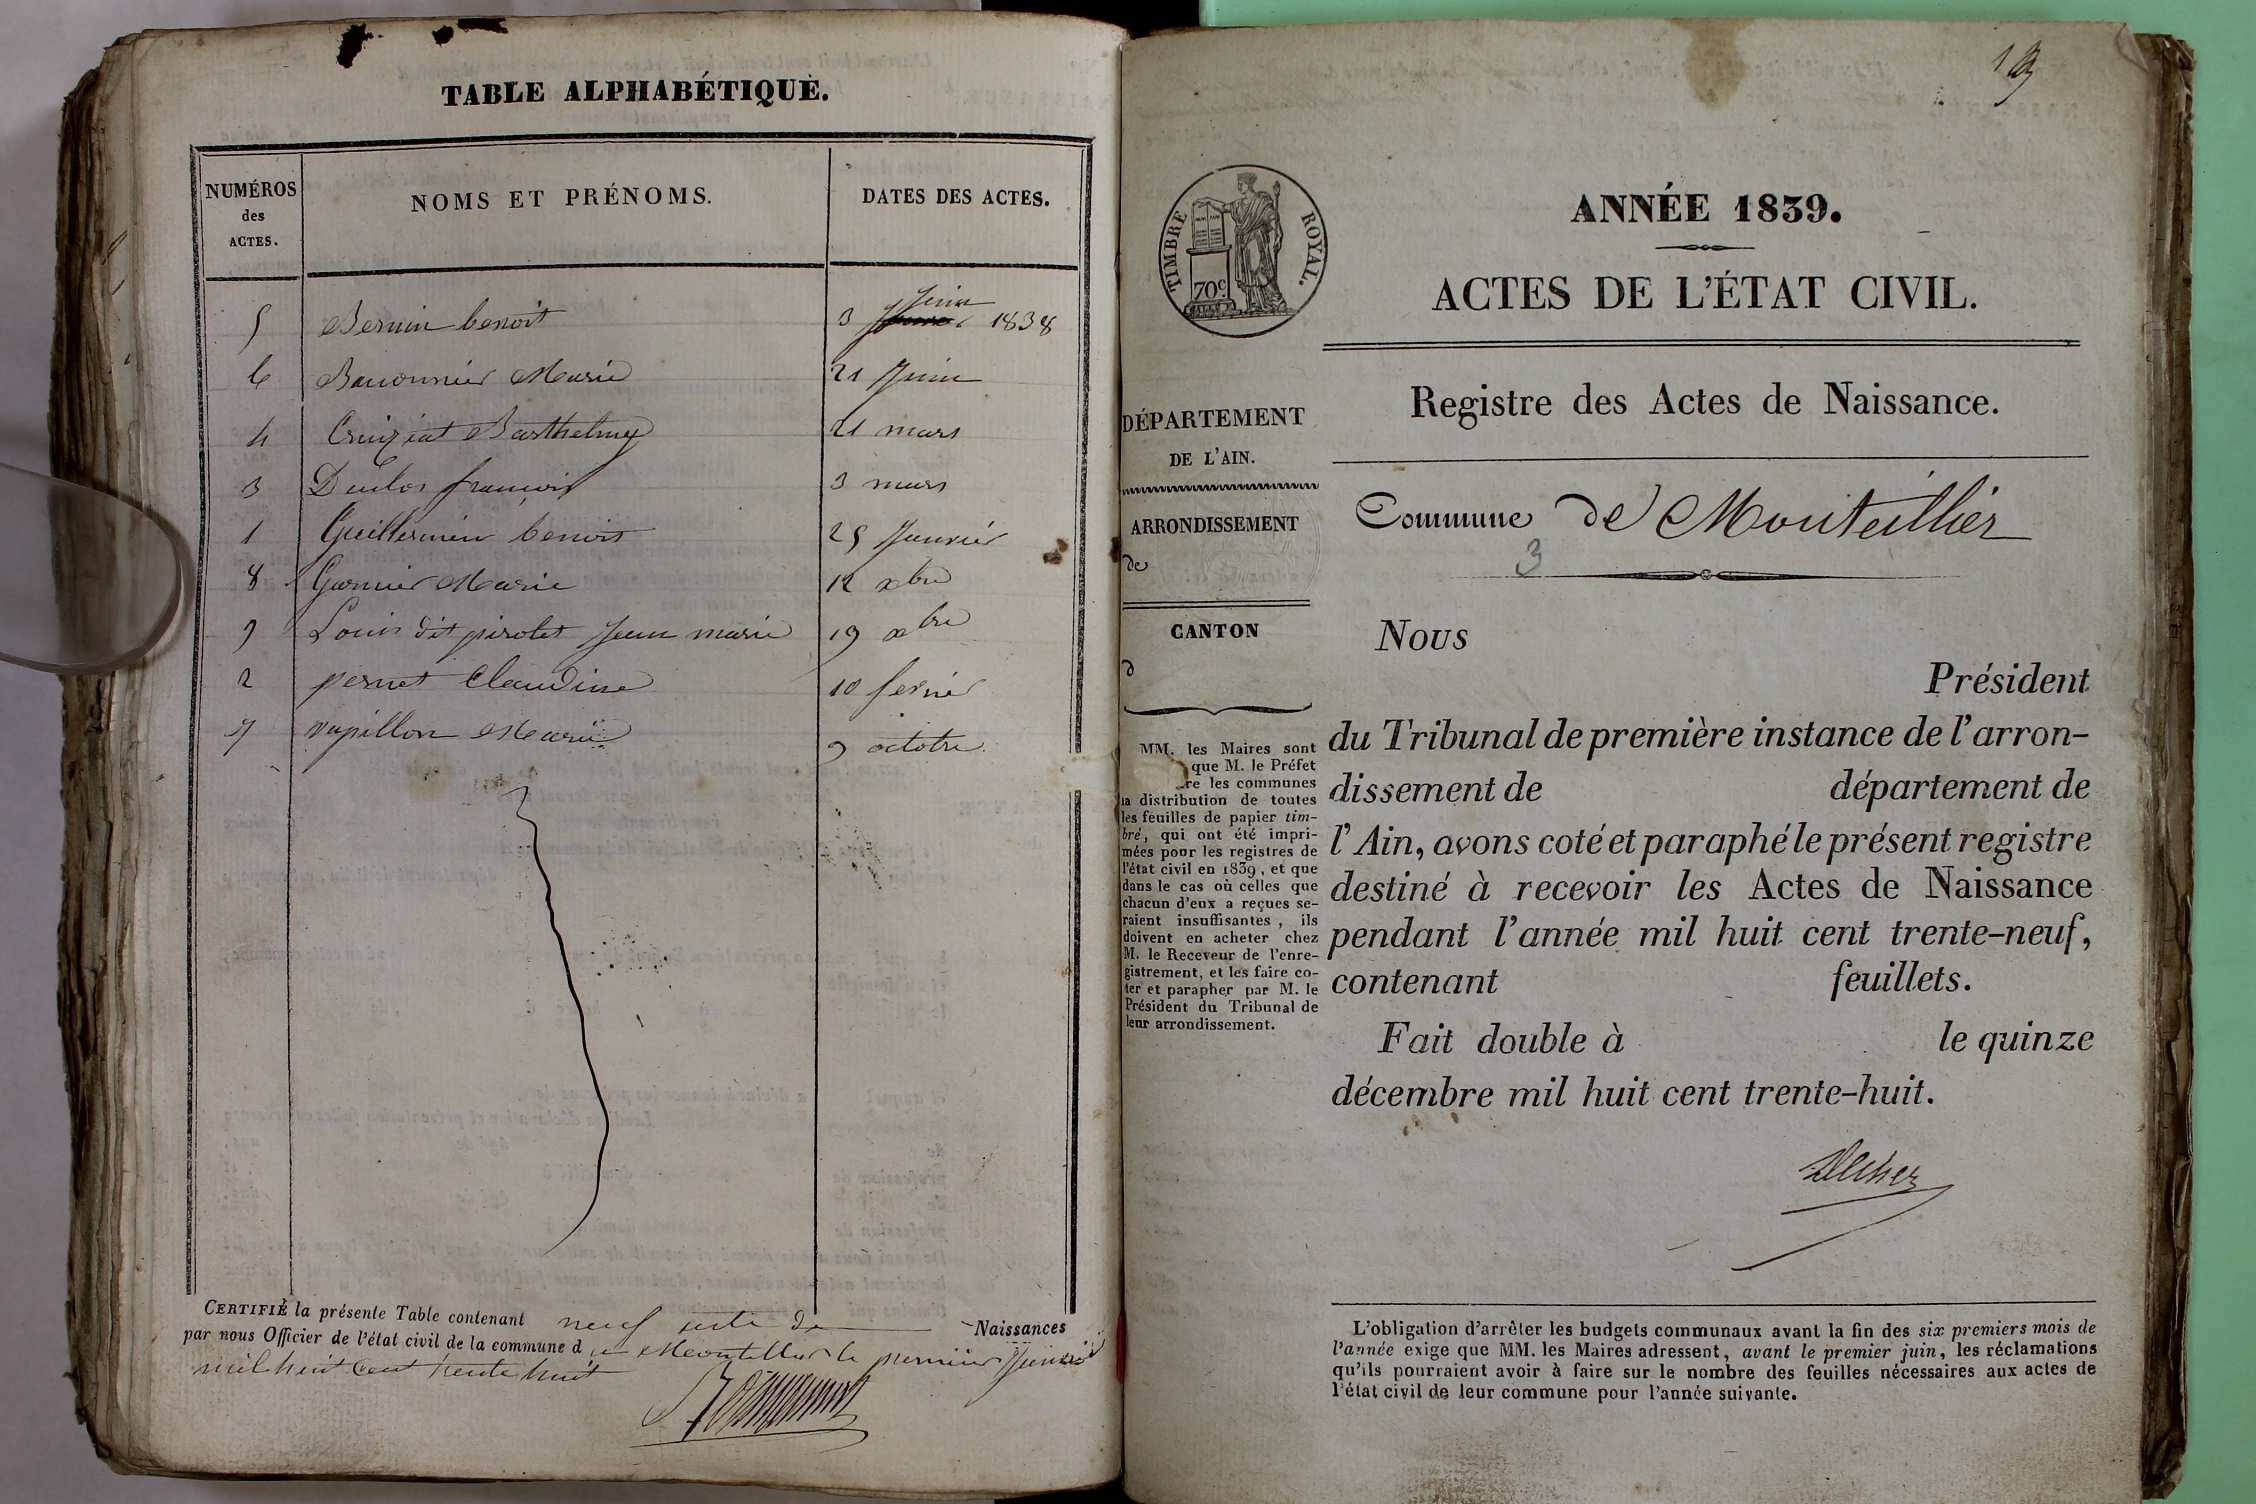 TABLE ALPHABÉTIQUE.
NUMÉROS des ACTES.
NOMS ET PRÉNOMS.
DATES DES ACTES.
5 Bernin benoit 3 Juin 1838
6 Marie 21 Juin
4 Cruiziat Barthelmy 21 mars
3 Duclos françois 3 mars
1 Guillermin benoit 25 Janvier
8 Garnier Marie 12 xbre
9 Louis dit pirolet Jean marie 19 xbre
2 pernet Claudine 10 fevrier
7 vupillon Marie 9 octobre
CERTIFIÉ la présente Table contenant neuf acte de Naissances
par nous Officier de l'état civil de la commune d e Montellier le premier Janvier
mil huit cent trente huit
13
TIMBRE ROYAL.
70c
ANNÉE 1839.
ACTES DE L'ÉTAT CIVIL.
Registre des Actes de Naissance.
DÉPARTEMENT
DE L'AIN.
ARRONDISSEMENT
de
CANTON
d
MM. les Maires sont
que M. le Préfet
re les communes
la distribution de toutes
les feuilles de papier tim-
bré, qui ont été impri-
mées pour les registres de
l'état civil en 1839, et que
dans le cas où celles que
chacun d'eux a reçues se-
raient insuffisantes, ils
doivent en acheter chez
M. le Receveur de l'enre-
gistrement, et les faire co-
ter et parapher par M. le
Président du Tribunal de
leur arrondissement.
Commune de Monteillier
3
Nous
Président
du Tribunal de première instance de l'arron-
dissement de département de
l'Ain, avons coté et paraphé le présent registre
destiné à recevoir les Actes de Naissance
pendant l'année mil huit cent trente-neuf,
contenant feuillets.
Fait double à le quinze
décembre mil huit cent trente-huit.
L'obligation d'arrêter les budgets communaux avant la fin des six premiers mois de
l'année exige que MM. les Maires adressent, avant le premier juin, les réclamations
qu'ils pourraient avoir à faire sur le nombre des feuilles nécessaires aux actes de
l'état civil de leur commune pour l'année suivante.